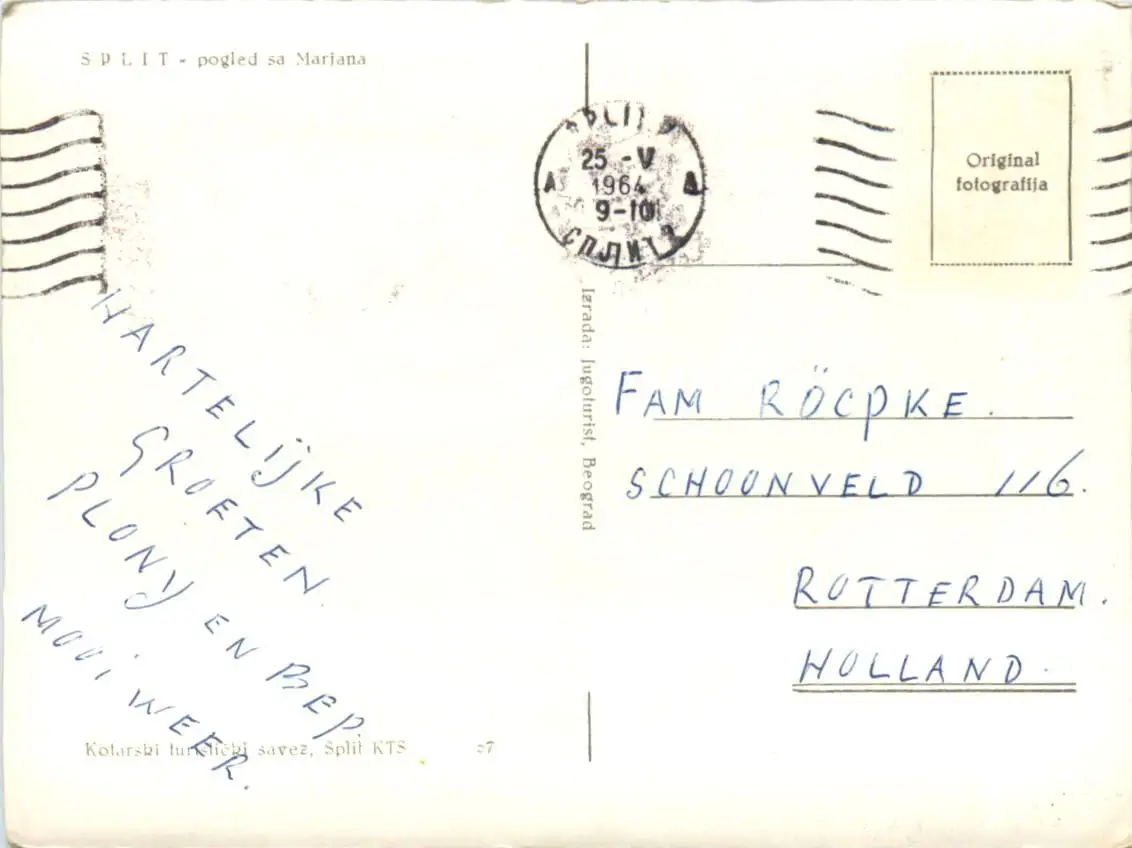 SPLIT - pogled sa Marjana
SPLIT 2
25 -V
1964
9-10
A
СПЛИТ 2
Original
fotografija
HARTELIJKE
GROETEN
PLONY EN BEP.
MOOI WEER.
Izrada: Jugoturist, Beograd
FAM RÖCPKE.
SCHOONVELD 116.
ROTTERDAM.
HOLLAND.
Kotarski turistički savez, Split KTS